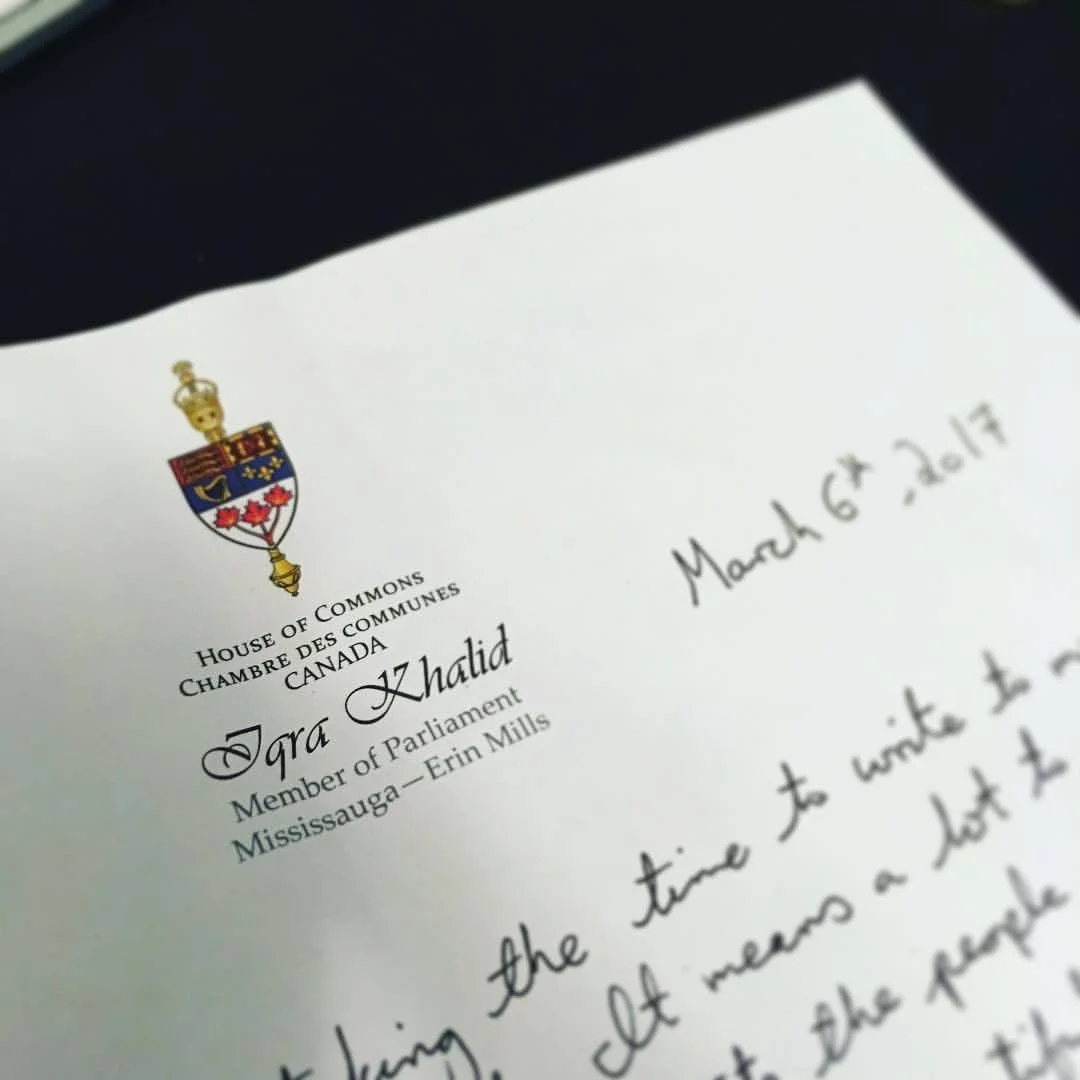 HOUSE OF COMMONS
CHAMBRE DES COMMUNES
CANADA
Iqra Khalid
Member of Parliament
Mississauga—Erin Mills
March 6th, 2017
taking the time to write to
It means a lot to
the people